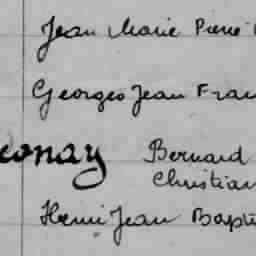 Jean Marie Pierre
Georges Jean Fran
eonay Bernard
Christian
Henri Jean Bapti